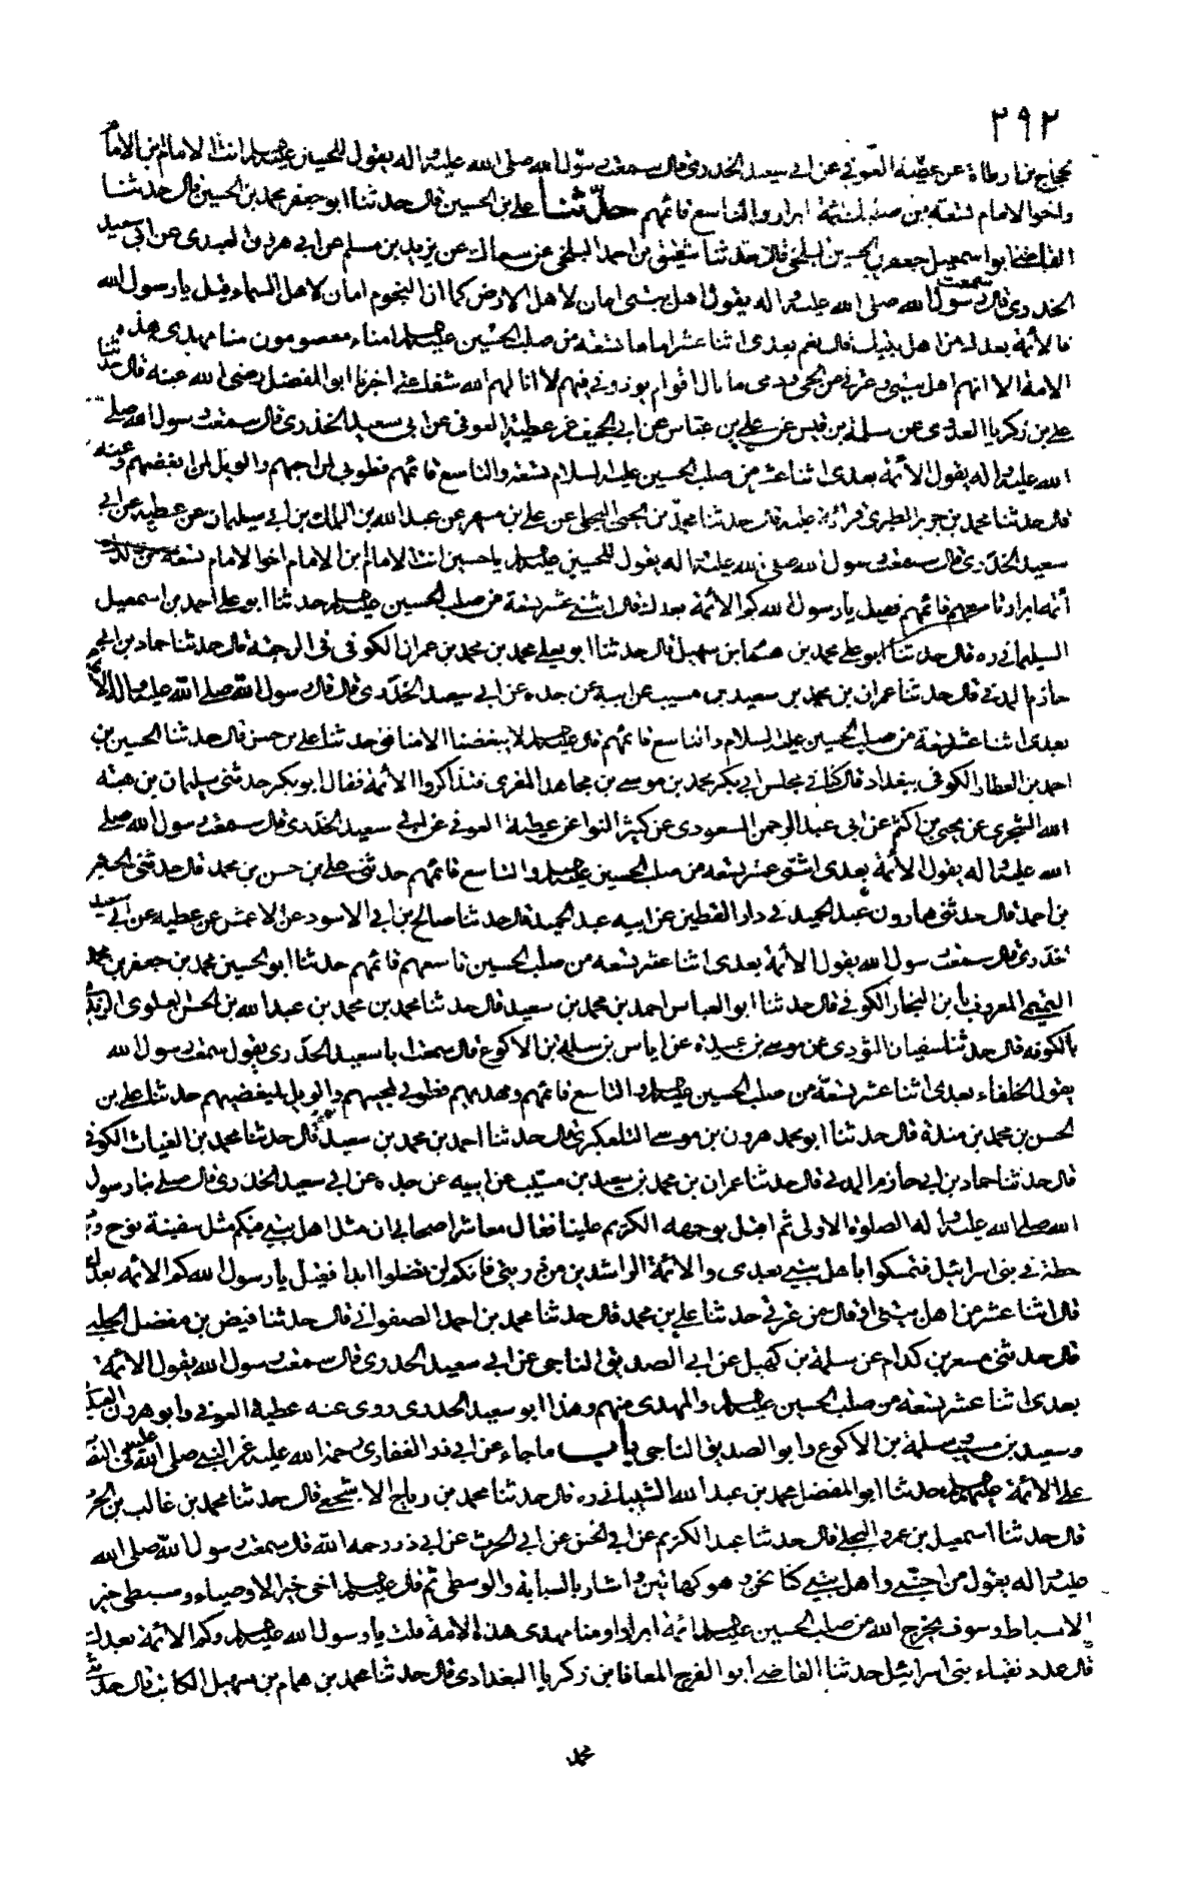 ٢٩٢
حجاج بن ارطاة عن عطية العوفي عن ابي سعيد الخدري قال سمعت رسول الله صلى الله عليه واله يقول للحسين عليه السلم انت الامام بن الامام
واخوا لامام تسعة من صلبك ائمة ابرار والتاسع قائمهم حدثنا علي بن الحسين قال حدثنا ابو جعفر محمد بن الحسين قال حدثنا
ابو اسمعيل جعفر بن الحسين البلخي قال حدثنا شقيق بن احمد البلخي عن سماك عن يزيد بن مسلم عن ابي هرون العبدي عن ابي سعيد
الخدري قال سمعت رسول الله صلى الله عليه واله يقول اهل بيتي امان لاهل الارض كما ان النجوم امان لاهل السماء قيل يا رسول الله
فالأئمة بعدك من اهل بيتك قال نعم بعدي اثنا عشر اماما تسعة من صلب الحسين عليه السلم امناء معصومون منا مهدي هذه
الامة الا انهم اهل بيتي وعترتي من لحمي ودمي ما بال اقوام يوذوني فيهم لا انا لهم الله شفاعتي اخبرنا ابو المفضل رضى الله عنه قال حدثنا
علي بن زكريا العدوي عن سلمة بن قيس عن علي بن عباس عن ابي الحجيف عن عطية العوفي عن ابي سعيد الخدري قال سمعت رسول الله صلى
الله عليه واله يقول الأئمة بعدي اثنا عشر من صلب الحسين عليه السلام تسعة والتاسع قائمهم فطوبى لمن احبهم والويل لمن ابغضهم وعنه
قال حدثنا محمد بن جرير الطبري قراءة عليه قال حدثنا محمد بن يحيى البجلي عن علي بن مسهر عن عبد الله بن الملك بن ابي سليمان عن عطية عن ابي
سعيد الخدري قال سمعت رسول الله صلى الله عليه واله يقول للحسين عليه السلم يا حسين انت الامام ابن الامام اخوا لامام تسعة من ولدك
أئمة ابرار تاسعهم قائمهم فقيل يا رسول الله كم الأئمة بعدك قال اثنى عشر تسعة من صلب الحسين عليه السلم حدثنا ابو علي احمد بن اسمعيل
السليماني ره قال حدثنا ابو علي محمد بن همام بن سهيل قال حدثنا ابو يعلى محمد بن محمد بن عمران الكوفي في الرحبة قال حدثنا حماد بن ابي
حازم المدني قال حدثنا عمران بن محمد بن سعيد بن مسيب عن ابيه عن جده عن ابي سعيد الخدري قال قال رسول الله صلى الله عليه واله الأئمة
بعدي اثنا عشر تسعة من صلب الحسين عليه السلام والتاسع قائمهم قال عليه السلم لا يبغضنا الا منافق حدثنا علي بن حسن قال حدثنا الحسين بن
احمد بن العطار الكوفي ببغداد قال كنا في مجلس ابي بكر محمد بن موسى بن مجاهد المقري فتذاكروا الأئمة فقال ابو بكر حدثني سليمان بن هبة
الله الشجري عن يحيى بن اكثم عن ابي عبد الرحمن المسعودي عن كثير النوا عن عطية العوفي عن ابي سعيد الخدري قال سمعت رسول الله صلى
الله عليه واله يقول الأئمة بعدي اثني عشر تسعة من صلب الحسين عليه السلم والتاسع قائمهم حدثني علي بن حسن بن محمد قال حدثني الحسين
بن احمد قال حدثني هارون عبد الحميد في دار القطين عن ابيه عبد الحميد قال حدثنا صالح بن ابي الاسود عن الاعمش عن عطية عن ابي سعيد
الخدري قال سمعت رسول الله يقول الأئمة بعدي اثنا عشر تسعة من صلب الحسين تاسعهم قائمهم حدثنا ابو الحسين محمد بن جعفر بن محمد
التميمي المعروف بابن النجار الكوفي قال حدثنا ابو العباس احمد بن محمد بن سعيد قال حدثنا محمد بن محمد بن عبد الله بن الحسن العلوي
بالكوفة قال حدثنا سفيان الثوري عن موسى بن عبيدة عن اياس بن سلمة بن الاكوع قال سمعت ابا سعيد الخدري يقول سمعت رسول الله
يقول الخلفاء بعدي اثنا عشر تسعة من صلب الحسين عليه السلم والتاسع قائمهم ومهديهم فطوبى لمحبيهم والويل لمبغضيهم حدثنا علي بن
الحسن بن محمد بن مندة قال حدثنا ابو محمد هرون بن موسى التلعكبري قال حدثنا احمد بن محمد بن سعيد قال حدثنا محمد بن الغياث الكوفي
قال حدثنا حماد بن ابي حازم المدني قال حدثنا عمران بن محمد بن سعيد بن مسيب عن ابيه عن جده عن ابي سعيد الخدري قال صلى بنا رسول
الله صلى الله عليه واله الصلوة الاولى ثم اقبل بوجهه الكريم علينا فقال معاشر اصحابي ان مثل اهل بيتي فيكم مثل سفينة نوح وباب
حطة في بني اسرائيل فتمسكوا باهل بيتي بعدي والائمة الراشدين من ذريتي فانكم لن تضلوا ابدا فقيل يا رسول الله كم الائمة بعدك
قال اثنا عشر من اهل بيتي او قال من عترتي حدثنا علي بن محمد قال حدثنا محمد بن احمد الصفواني قال حدثنا فيض بن مفضل الحلبي
قال حدثني مسعر بن كدام عن سلمة بن كهيل عن ابي الصديق الناجي عن ابي سعيد الخدري قال سمعت رسول الله يقول الائمة
بعدي اثنا عشر تسعة من صلب الحسين عليه السلم والمهدي منهم وهذا ابو سعيد الخدري روى عنه عطية العوفي وابو هرون العبدي
وسعيد بن مسيب وسلمة بن الاكوع وابو الصديق الناجي باب ما جاء عن ابي ذر الغفاري رحمة الله عليه عن النبي صلى الله عليه في النص
على الائمة عليهم السلم حدثنا ابو المفضل محمد بن عبد الله الشيباني ره قال حدثنا محمد بن رباح الاشجعي قال حدثنا محمد بن غالب بن الحرث
قال حدثنا اسمعيل بن عمرو البجلي قال حدثنا عبد الكريم عن ابي الحسن عن ابي الحرث عن ابي ذر رحمه الله قال سمعت رسول الله صلى الله
عليه واله يقول من احبني واهل بيتي كنا نحن وهو كهاتين واشار بالسبابة والوسطى ثم قال عليه السلم اخي خير الاوصياء وسبطي خير
الاسباط وسوف يخرج الله من صلب الحسين عليه السلم ائمة ابرارا ومنا مهدي هذه الامة قلت يا رسول الله عليه السلم وكم الائمة بعدك
قال عدد نقباء بني اسرائيل حدثنا القاضي ابو الفرج المعافا بن زكريا البغدادي قال حدثنا محمد بن همام بن سهيل الكاتب قال حدثني
محمد